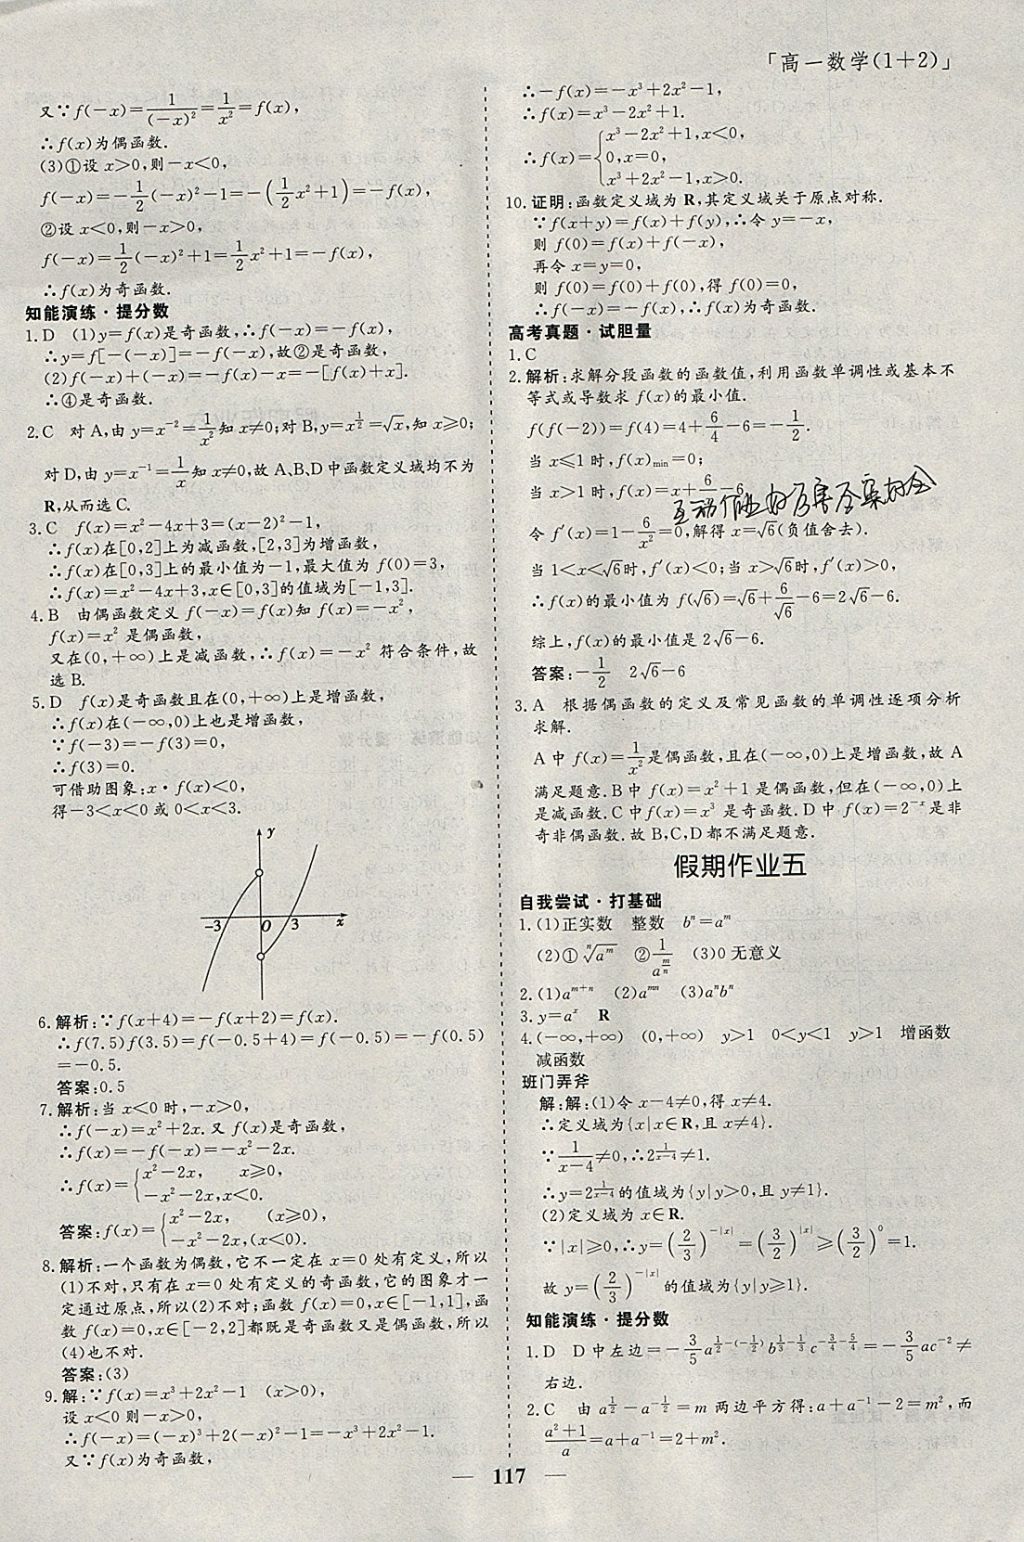 「高一数学(1+2)」
又∵f(-x)=1/(-x)²=1/x²=f(x),
∴f(x)为偶函数.
(3)①设 x>0,则-x<0,
f(-x)=-1/2(-x)²-1=-(1/2x²+1)=-f(x),
②设 x<0,则-x>0,
f(-x)=1/2(-x)²+1=1/2x²+1=-f(x),
∴f(x)为奇函数.
知能演练·提分数
1.D (1)y=f(x)是奇函数,∴f(-x)=-f(x),
∴y=f[-(-x)]=-f(-x),故②是奇函数,
(2)f(-x)+(-x)=-f(x)-x=-[f(x)+x].
∴④是奇函数.
2.C 对 A,由 y=x⁻²=1/x²知 x≠0;对 B,y=x^(1/2)=√x,知 x≥0;
对 D,由 y=x⁻¹=1/x知 x≠0,故 A、B、D 中函数定义域均不为
R,从而选 C.
3.C f(x)=x²-4x+3=(x-2)²-1,
∴f(x)在[0,2]上为减函数,[2,3]为增函数,
∴f(x)在[0,3]上的最小值为-1,最大值为 f(0)=3,
∴f(x)=x²-4x+3,x∈[0,3]的值域为[-1,3].
4.B 由偶函数定义 f(-x)=f(x)知 f(x)=-x²,
f(x)=x² 是偶函数,
又在(0,+∞)上是减函数,∴f(x)=-x² 符合条件,故
选 B.
5.D f(x)是奇函数且在(0,+∞)上是增函数,
∴f(x)在(-∞,0)上也是增函数,
∵f(-3)=-f(3)=0,
∴f(3)=0.
可借助图象:x·f(x)<0,
得-3<x<0 或 0<x<3.
y
-3 O 3 x
6.解析:∵f(x+4)=-f(x+2)=f(x).
∴f(7.5)f(3.5)=f(-0.5+4)=f(-0.5)=-f(0.5)
=-0.5.
答案:0.5
7.解析:当 x<0 时,-x>0,
∴f(-x)=x²+2x.又 f(x)是奇函数,
∴f(x)=-f(-x)=-x²-2x.
∴f(x)={x²-2x, x≥0,
-x²-2x,x<0.
答案:f(x)={x²-2x, (x≥0),
-x²-2x,(x<0).
8.解析:一个函数为偶数,它不一定在 x=0 处有定义,所以
(1)不对,只有在 x=0 处有定义的奇函数,它的图象才一
定通过原点,所以(2)不对;函数 f(x)=0,x∈[-1,1],函
数 f(x)=0,x∈[-2,2]都既是奇函数又是偶函数,所以
(4)也不对.
答案:(3)
9.解:∵f(x)=x³+2x²-1 (x>0),
设 x<0,则-x>0,
∴f(-x)=(-x)³+2(-x)²-1=-x³+2x²-1.
又∵f(x)为奇函数,
∴-f(x)=-x³+2x²-1,
∴f(x)=x³-2x²+1.
∴f(x)={x³-2x²+1,x<0;
0,x=0;
x³+2x²-1,x>0.
10.证明:函数定义域为 R,其定义域关于原点对称.
∵f(x+y)=f(x)+f(y),∴令 y=-x,
则 f(0)=f(x)+f(-x),
再令 x=y=0,
则 f(0)=f(0)+f(0),得 f(0)=0,
∴f(-x)=-f(x),∴f(x)为奇函数.
高考真题·试胆量
1.C
2.解析:求解分段函数的函数值,利用函数单调性或基本不
等式或导数求 f(x)的最小值.
f(f(-2))=f(4)=4+6/4-6=-1/2.
当 x≤1 时,f(x)min=0;
当 x>1 时,f(x)=x+6/x-6.
令 f′(x)=1-6/x²=0,解得 x=√6(负值舍去).
当 1<x<√6时,f′(x)<0;当 x>√6时,f′(x)>0,
∴f(x)的最小值为 f(√6)=√6+6/√6-6=2√6-6.
综上,f(x)的最小值是 2√6-6.
答案:-1/2 2√6-6
3.A 根据偶函数的定义及常见函数的单调性逐项分析
求解.
A 中 f(x)=1/x²是偶函数,且在(-∞,0)上是增函数,故 A
满足题意.B 中 f(x)=x²+1 是偶函数,但在(-∞,0)上
是减函数.C 中 f(x)=x³ 是奇函数.D 中 f(x)=2⁻ˣ是非
奇非偶函数.故 B,C,D 都不满足题意.
假期作业五
自我尝试·打基础
1.(1)正实数 整数 bⁿ=aᵐ
(2)①ⁿ√aᵐ ②1/a^(m/n) (3)0 无意义
2.(1)aᵐ⁺ⁿ (2)aᵐⁿ (3)aⁿbⁿ
3.y=aˣ R
4.(-∞,+∞) (0,+∞) y>1 0<y<1 y>1 0<y<1 增函数
减函数
班门弄斧
解:解:(1)令 x-4≠0,得 x≠4.
∴定义域为{x|x∈R,且 x≠4}.
∵1/(x-4)≠0,∴2^(1/(x-4))≠1.
∴y=2^(1/(x-4))的值域为{y|y>0,且 y≠1}.
(2)定义域为 x∈R.
∵|x|≥0,∴y=(2/3)^(-|x|)=(3/2)^|x|≥(3/2)⁰=1.
故 y=(2/3)^(-|x|) 的值域为{y|y≥1}.
知能演练·提分数
1.D D 中左边=-3/5a^(1/2-(-1/2))b^(1/3-1/3)c^(-3/4-5/4)=-3/5ac⁻²≠
右边.
2.C 由 a^(1/2)-a^(-1/2)=m 两边平方得:a+a⁻¹-2=m²,而
(a²+1)/a=a+a⁻¹=2+m².
117